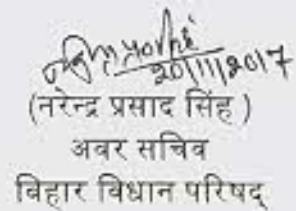 20/11/2017
(नरेन्द्र प्रसाद सिंह )
अवर सचिव
बिहार विधान परिषद्